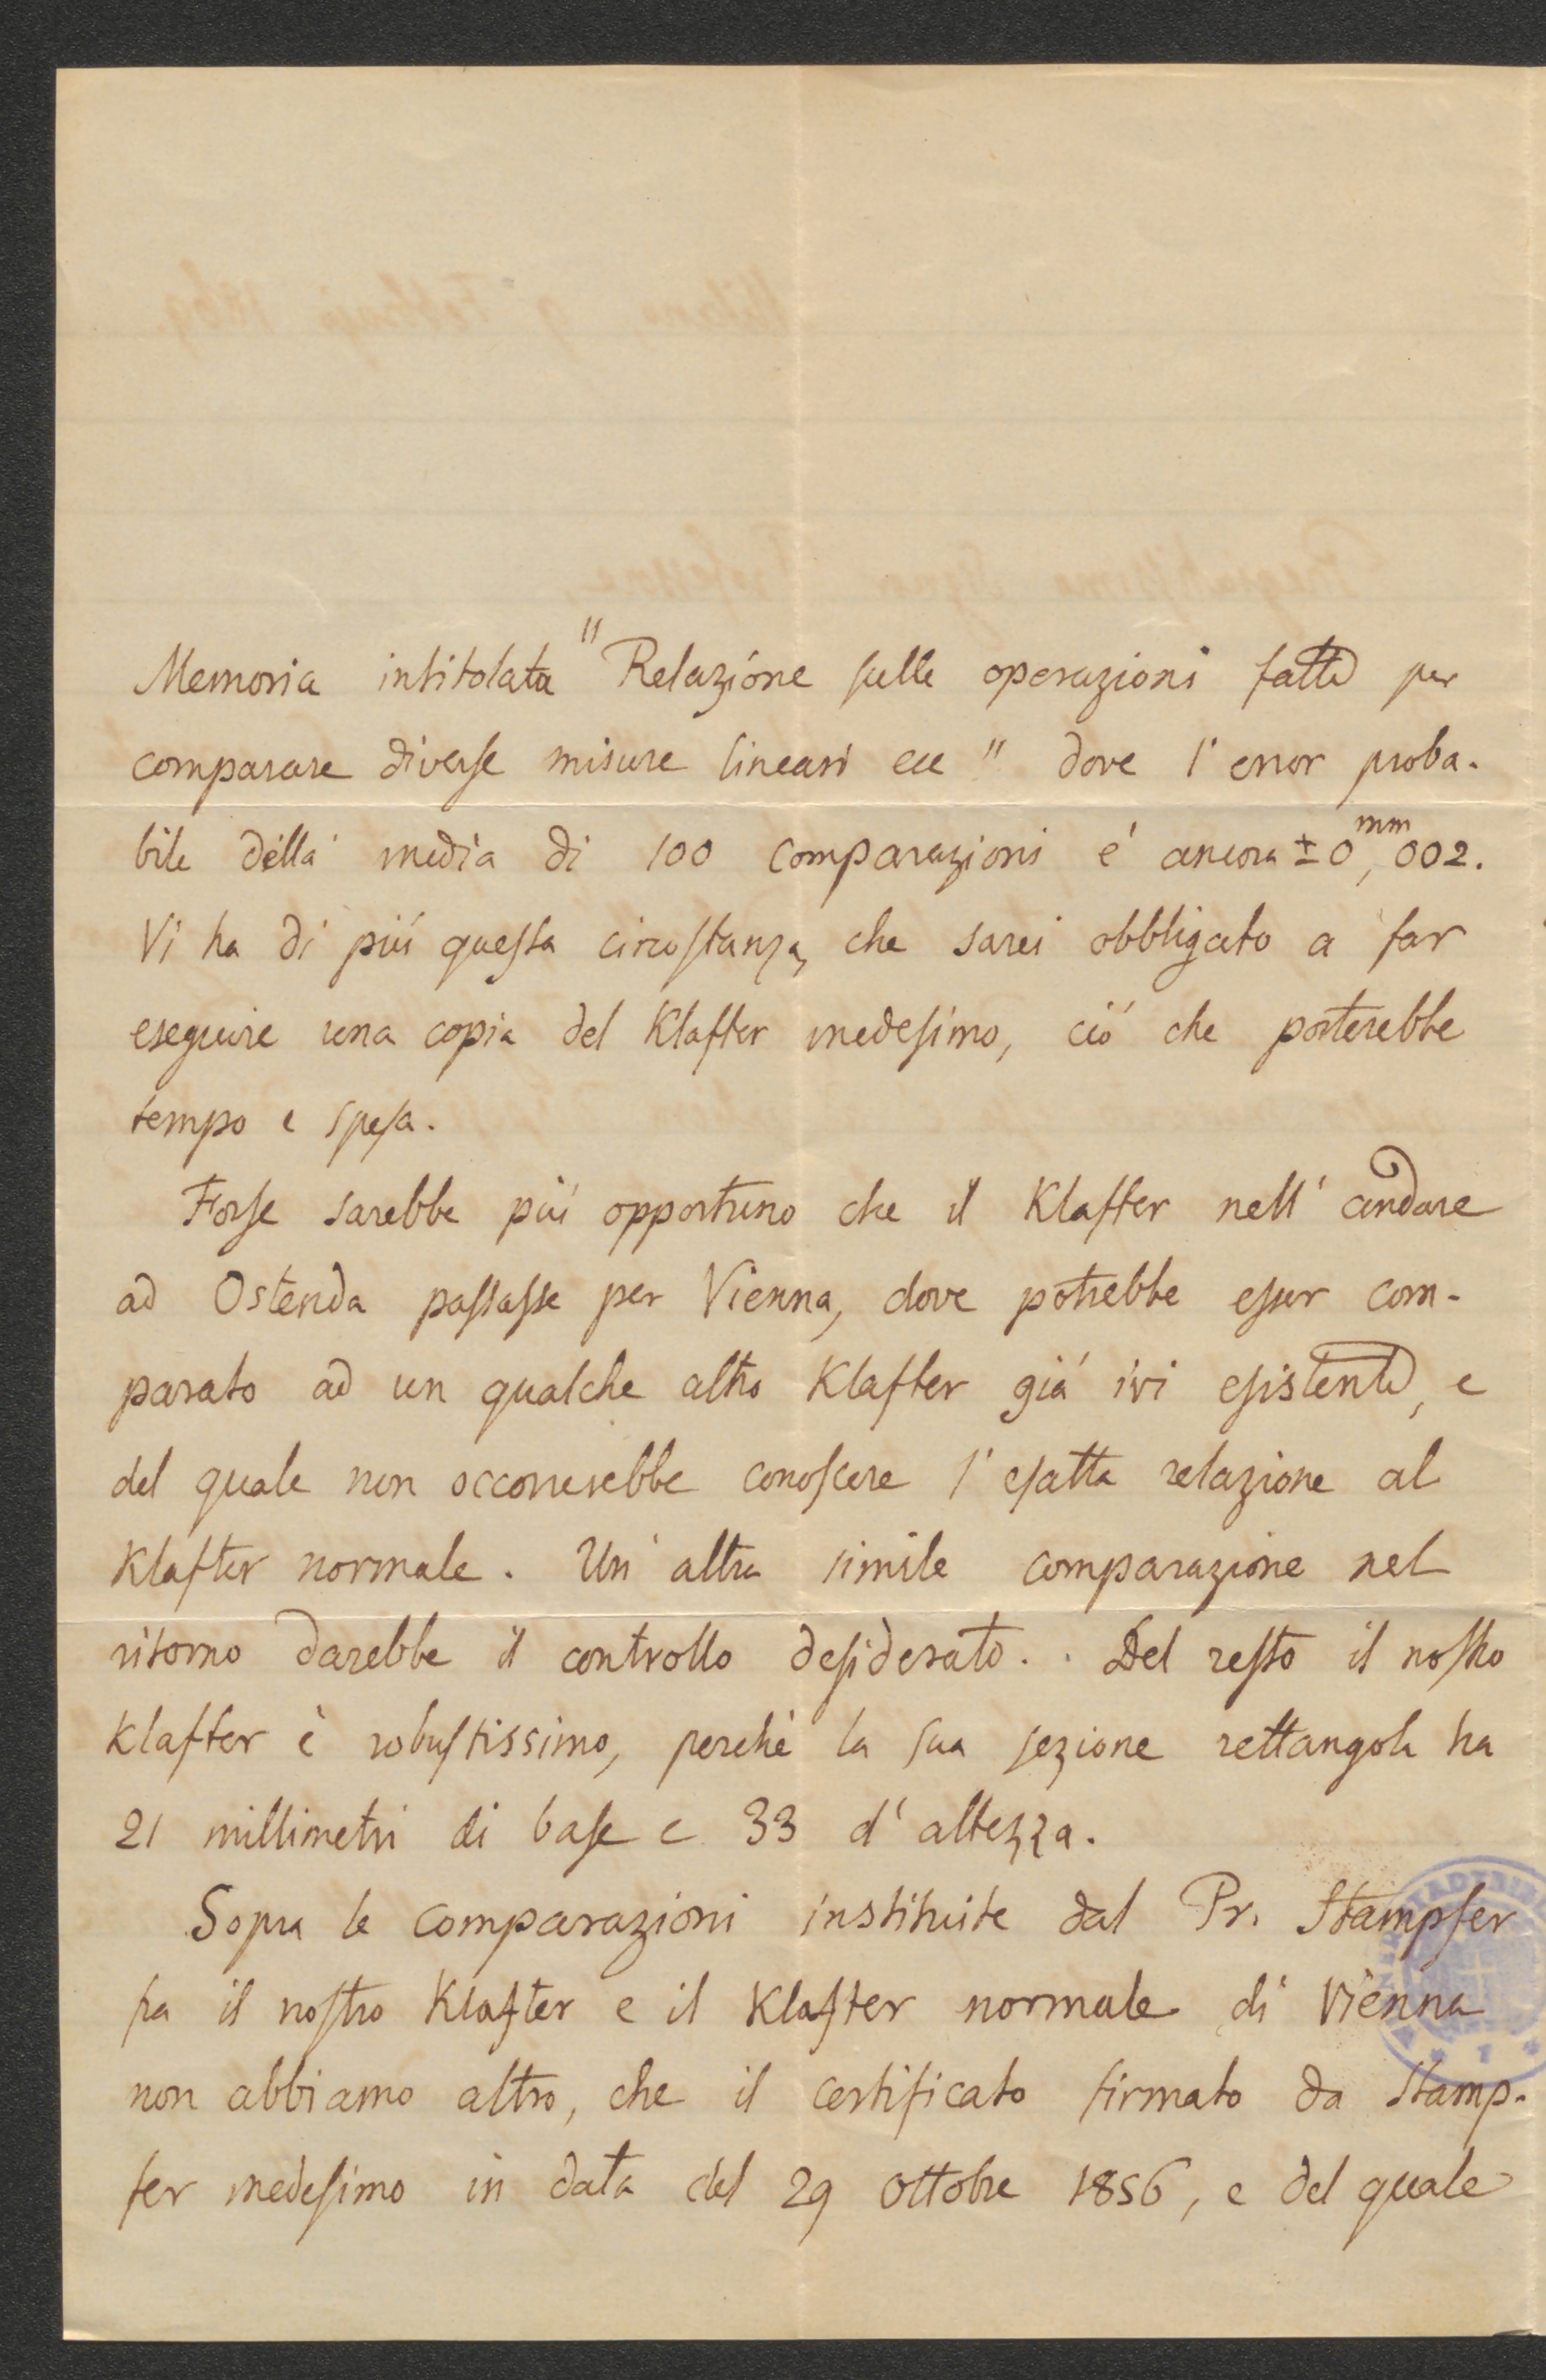 Memoria intitolata "Relazione sulle operazioni fatte per
comparare diverse misure lineari ecc" dove l'error proba-
bile della media di 100 comparazioni é ancora ±0,mm002.
Vi ha di piú questa circostanza, che sarei obbligato a far
eseguire una copia del Klafter medesimo, ció che porterebbe
tempo e spesa.
Forse sarebbe piú opportuno che il Klafter nell'andare
ad Ostenda passasse per Vienna, dove potrebbe esser com-
parato ad un qualche altro Klafter giá ivi esistente, e
del quale non occorrerebbe conoscere l'esatta relazione al
Klafter normale. Un'altra simile comparazione nel
ritorno darebbe il controllo desiderato. Del resto il nostro
Klafter è robustissimo, perchè la sua sezione rettangola ha
21 millimetri di base e 33 d'altezza.
Sopra le comparazioni instituite dal Pr. Stampfer
fra il nostro Klafter e il Klafter normale di Vienna
non abbiamo altro, che il certificato firmato da Stamp-
fer medesimo in data del 29 Ottobre 1856, e del quale